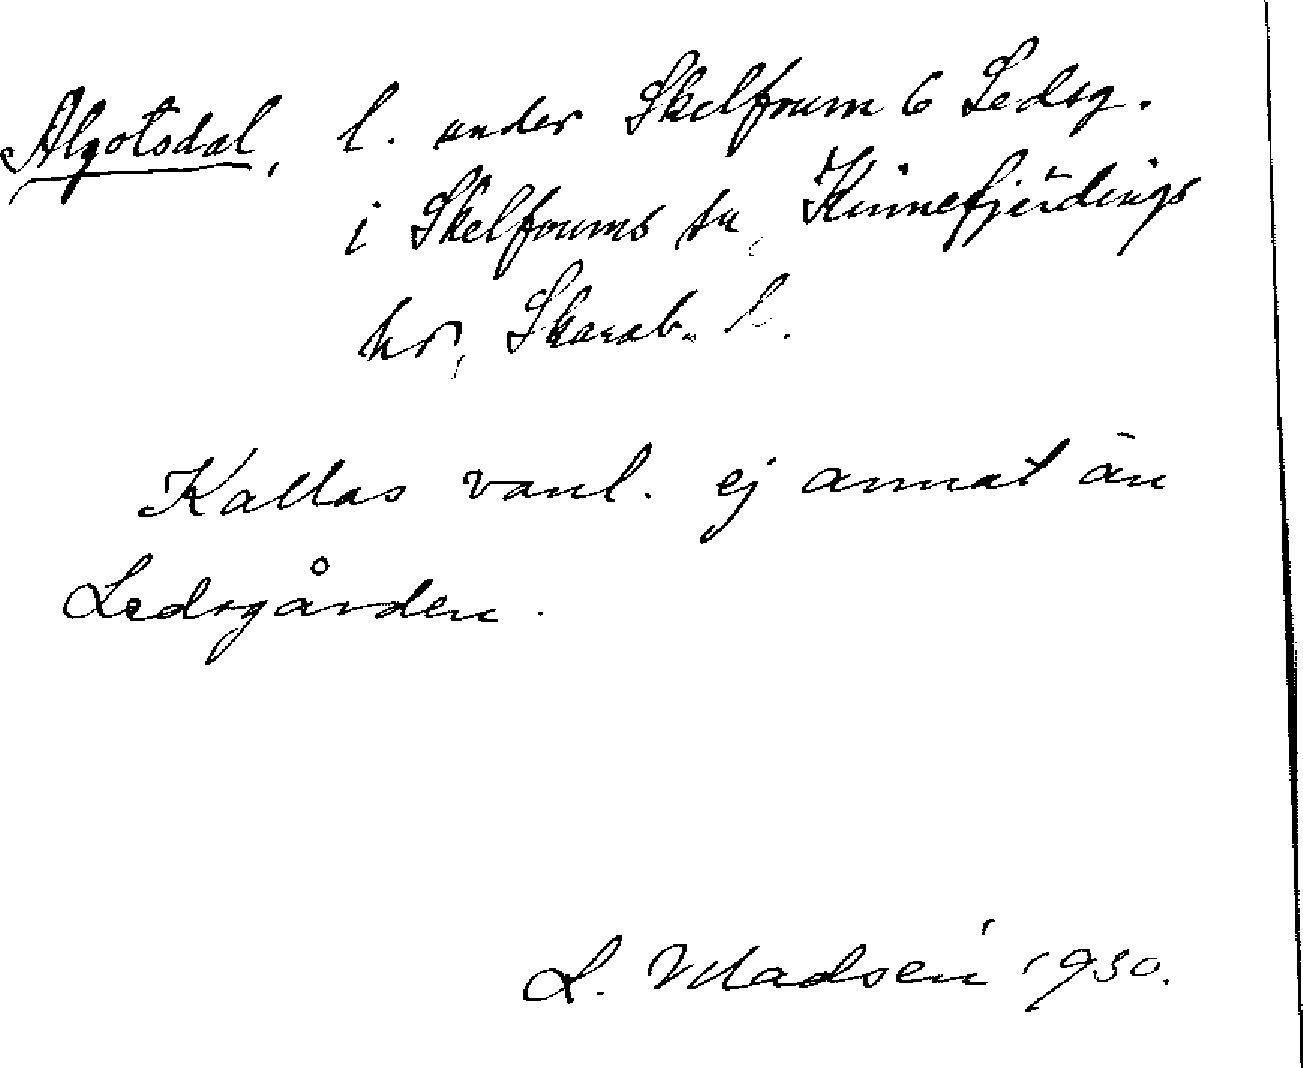 Algotsdal, l. under Skelfvum 6 Ledsg.
i Skelfvums sn, Kinnefjerdings
hd, Skarab. l.
Kallas vanl. ej annat än
Ledsgården.
L. Madsén 1930.